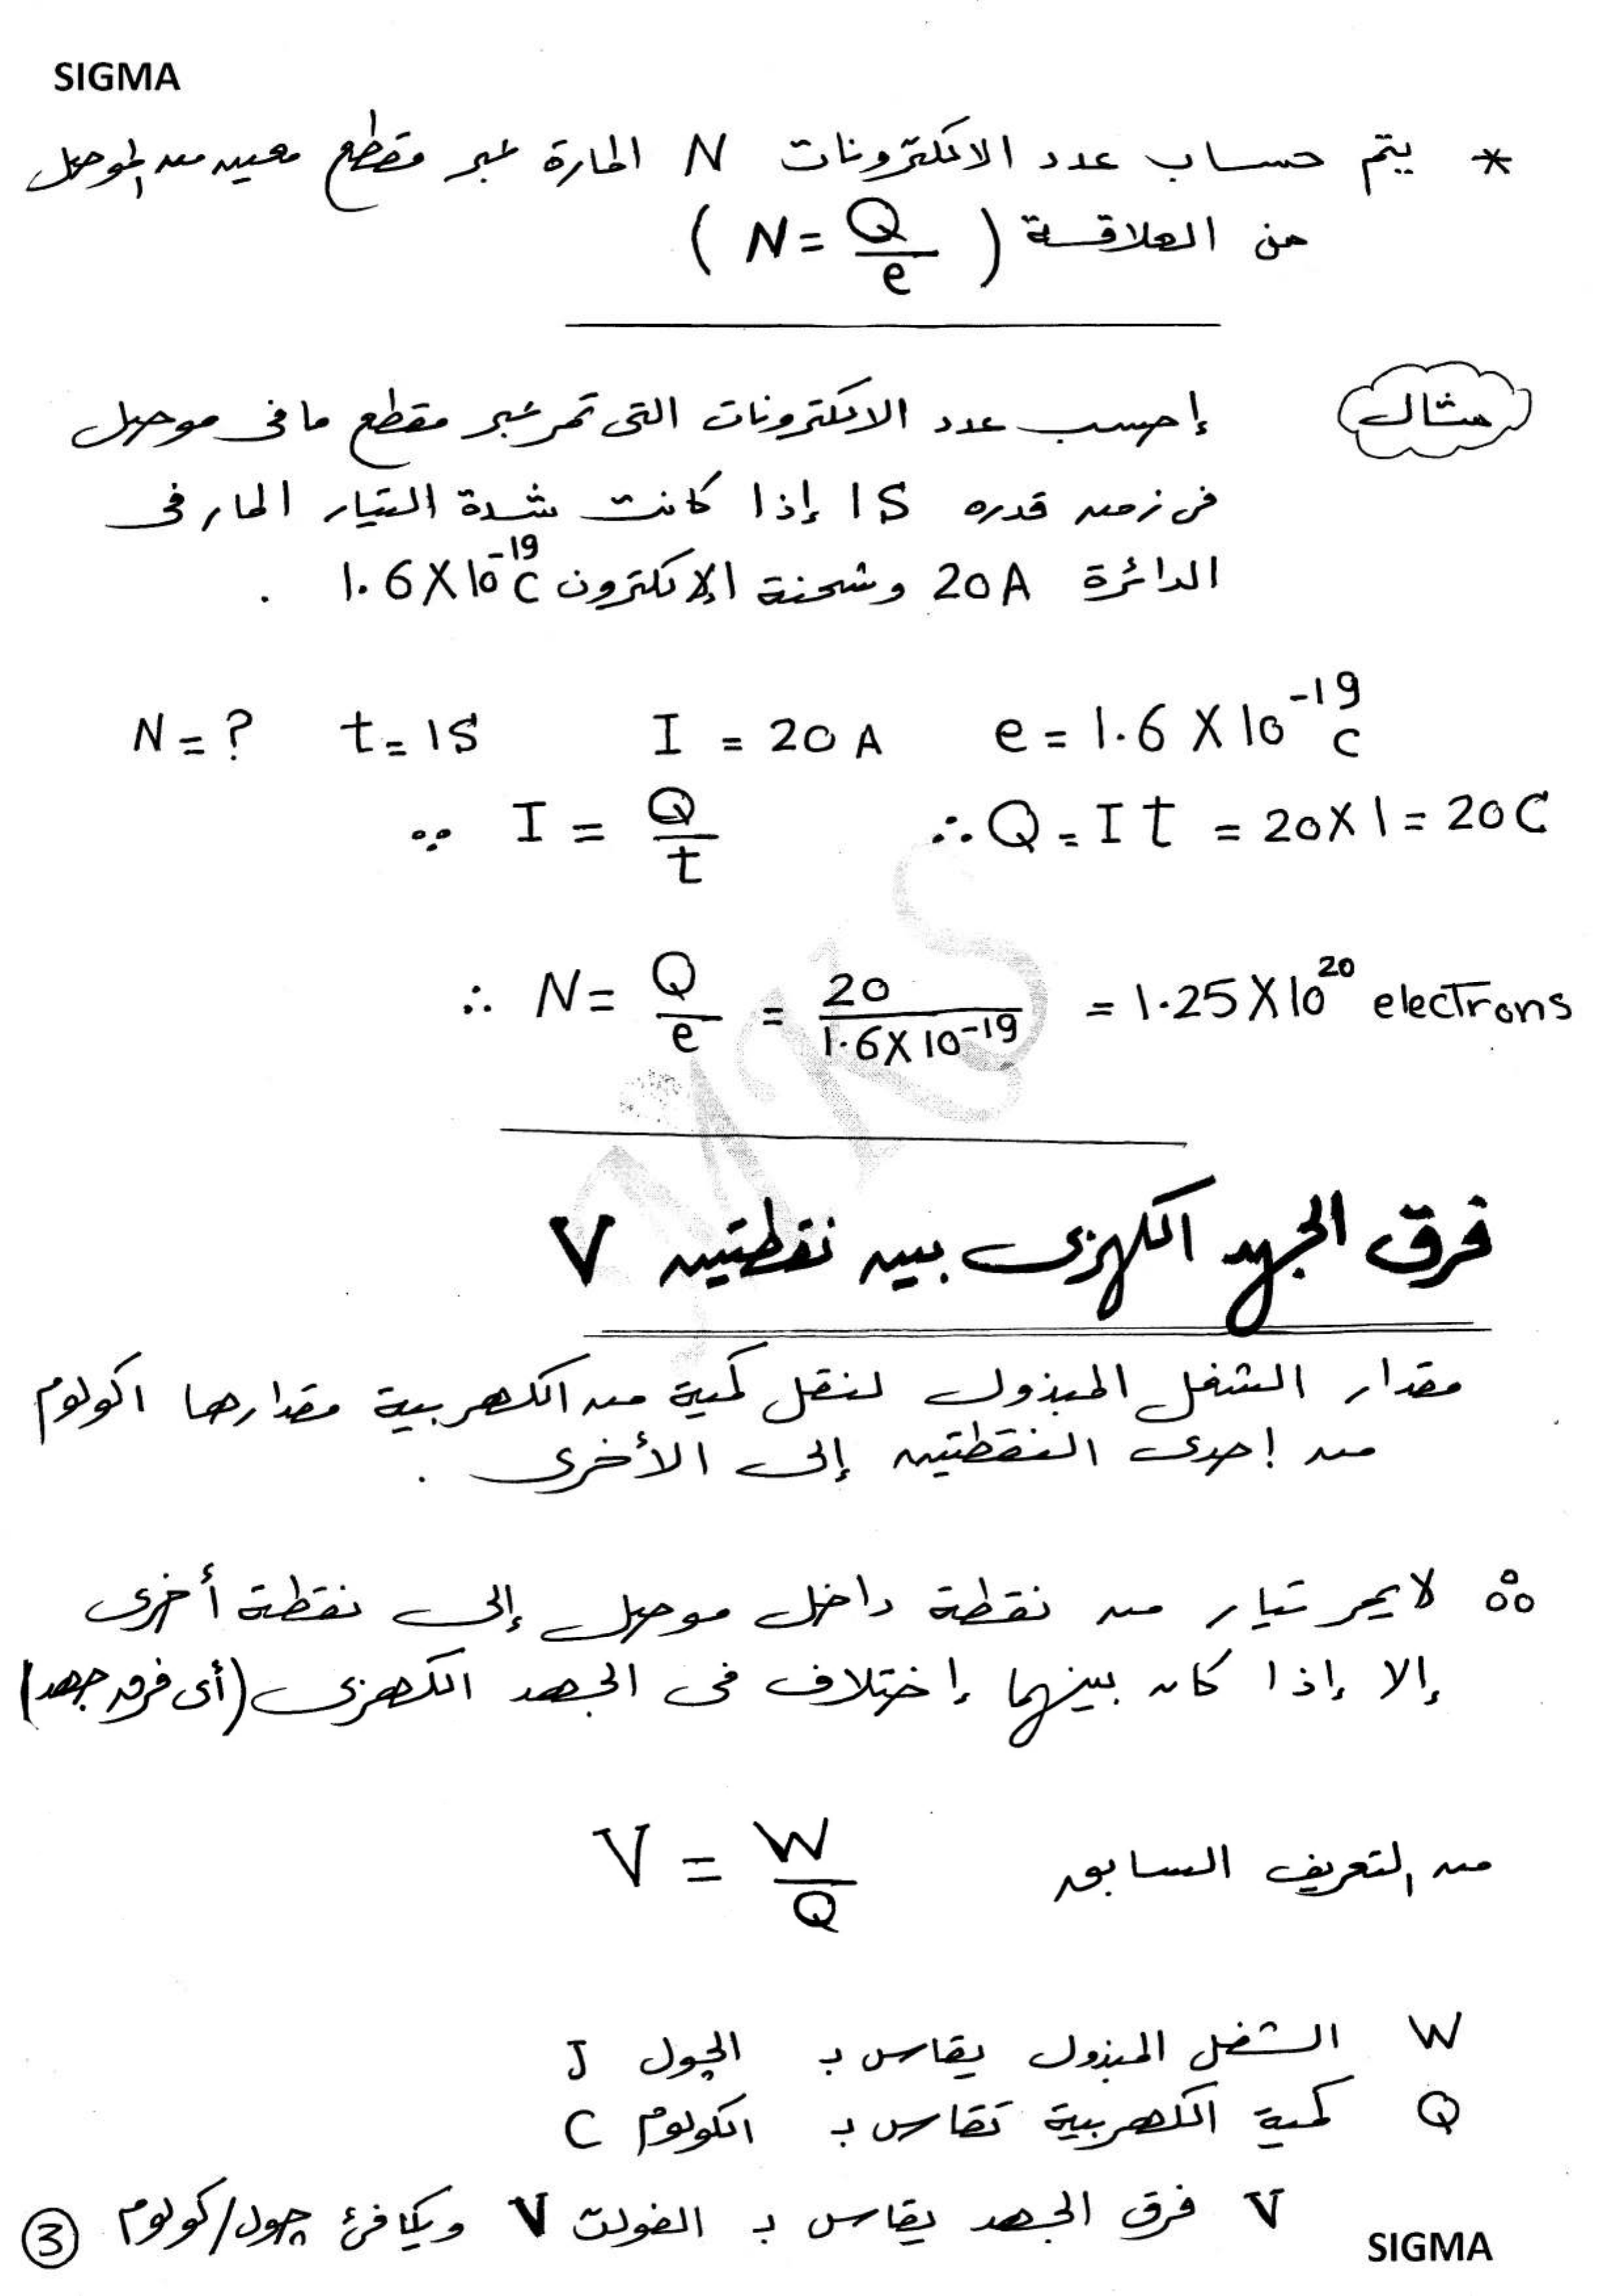 SIGMA
* يتم حساب عدد الالكترونات N المارة عبر مقطع معين من الموصل
من العلاقة ( N = Q/e )
مثال
إحسب عدد الالكترونات التى تمر عبر مقطع ما فى موصل
فى زمن قدره 1S إذا كانت شدة التيار المار فى
الدائرة 20A وشحنة الإلكترون 1.6X10^-19 C .
N = ? t = 1S I = 20 A e = 1.6 X 10^-19 C
∵ I = Q/t ∴ Q = I t = 20 X 1 = 20 C
∴ N = Q/e = 20/1.6X10^-19 = 1.25 X 10^20 electrons
MRS
فرق الجهد الكهربى بين نقطتين V
مقدار الشغل المبذول لنقل كمية من الكهربية مقدارها 1كولوم
من إحدى النقطتين إلى الأخرى .
ஃ لا يمر تيار من نقطة داخل موصل إلى نقطة أخرى
إلا إذا كان بينهما إختلاف فى الجهد الكهربى (أى فرق جهد)
من التعريف السابق V = W/Q
W الشغل المبذول يقاس بـ الچول J
Q كمية الكهربية تقاس بـ الكولوم C
V فرق الجهد يقاس بـ الفولت V ويكافئ چول/كولوم
3
SIGMA